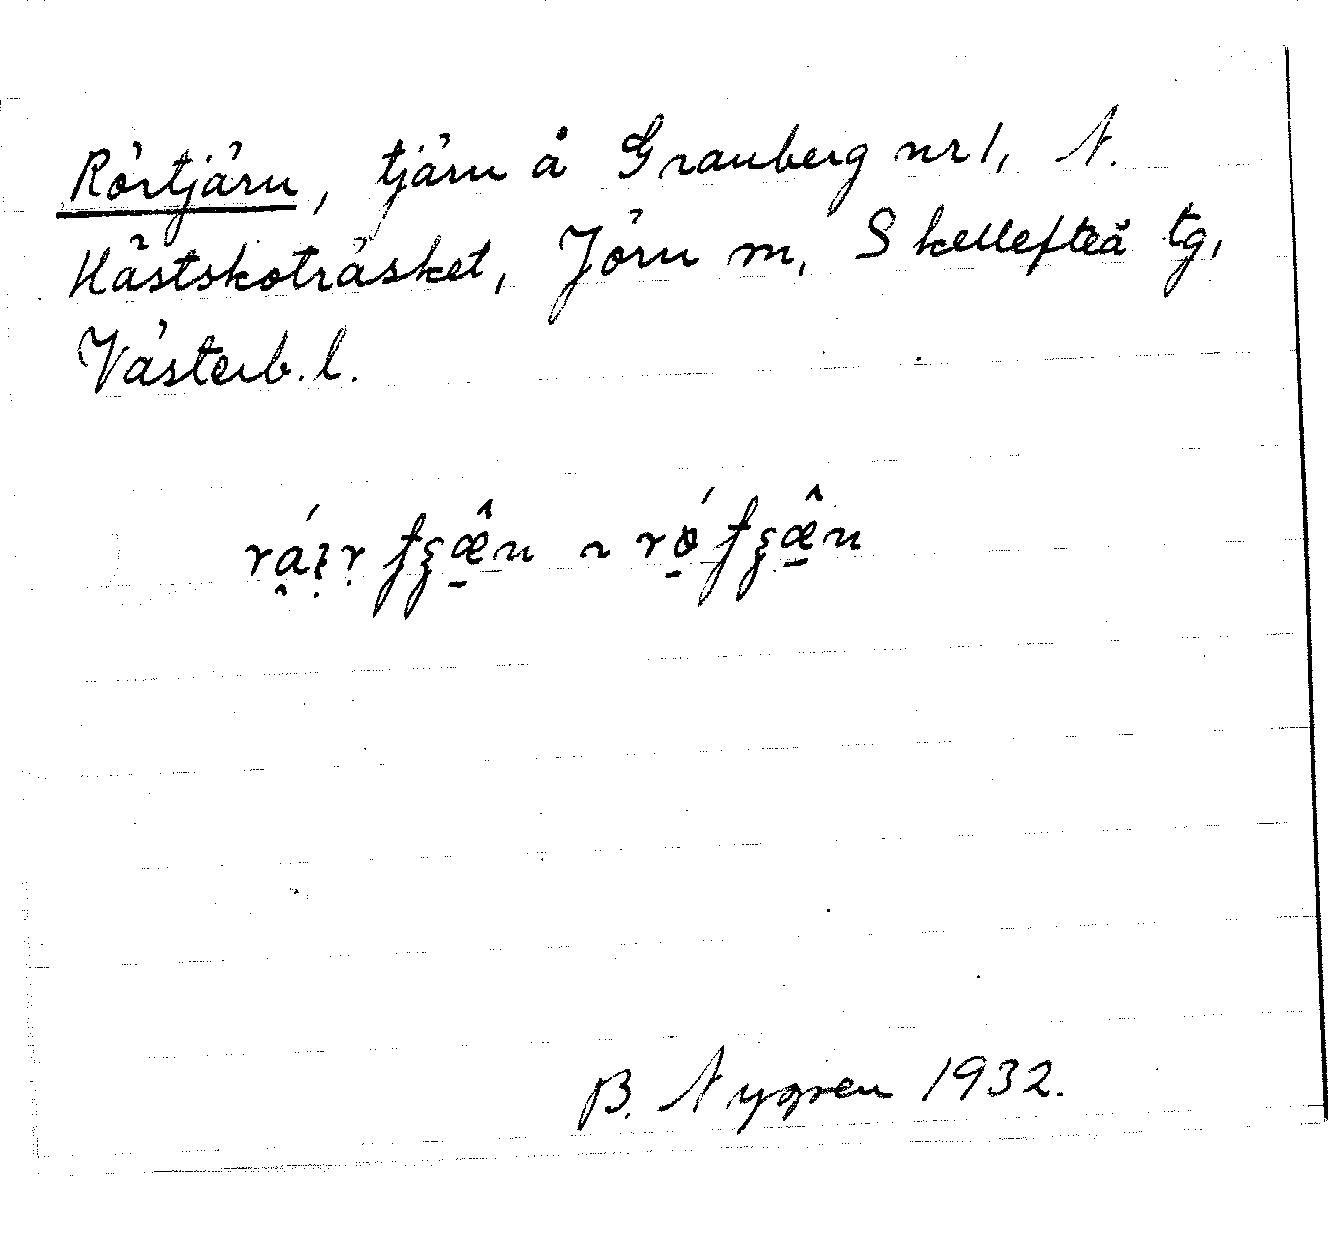 Rörtjärn, tjärn å Granberg nr 1, N.
Hästskoträsket, Jörn sn, Skellefteå tg,
Västerb. l.
B. Nygren 1932.